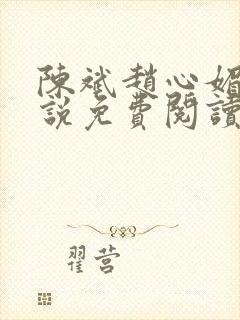 陳斌趙心媚
說免費閱讀
翟营